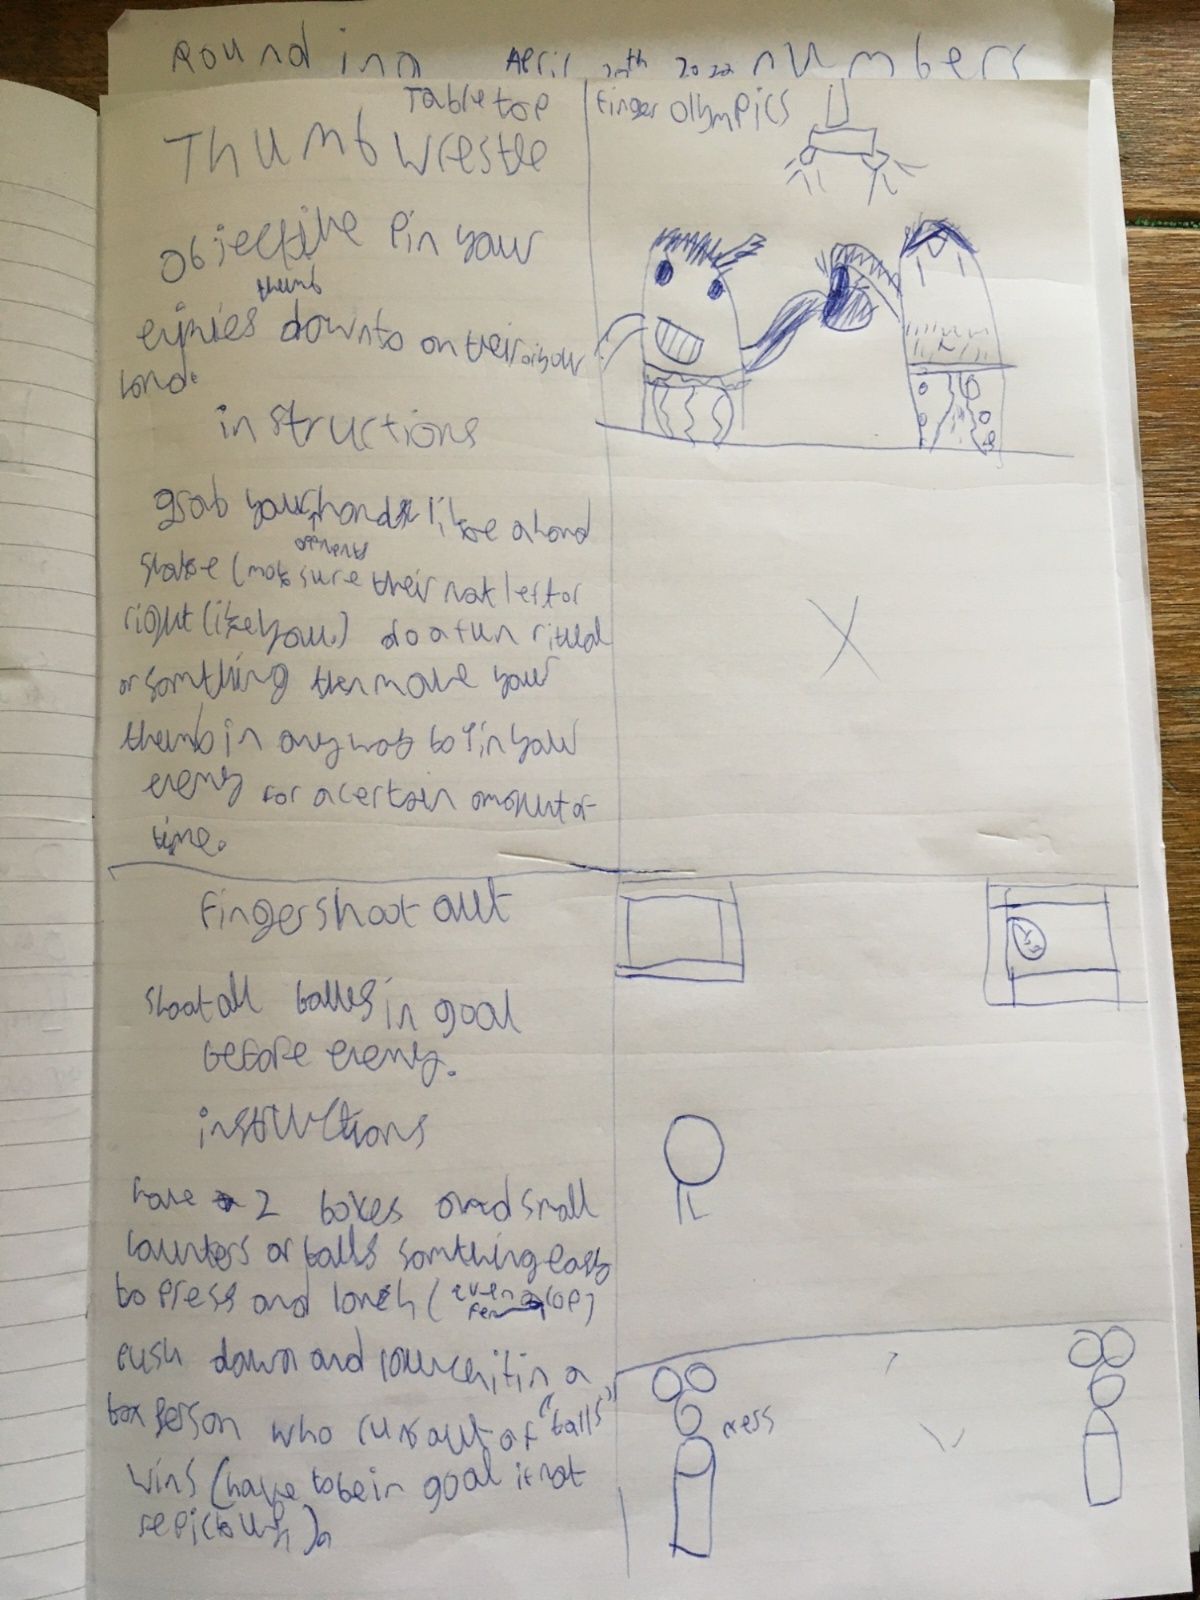 Rounding April 20th 2022 numbers
Tabletop Finger Olympics
Thumb wrestle
objective Pin your
thumb
enimies down to on their or your
hand.
instructions
grab your hands like a hand
opponents
shake (make sure their not left or
right like you.) do a fun ritual
or somthing then move your
thumb in any way to Pin your
enemy for a certain amount of
time.
finger shoot out
shoot all balls in goal
before enemy.
instructions
have 2 boxes and small
counters or balls somthing easy
to press and lonch (even a
pen top)
push down and launch it in a
box person who runs out of "balls"
wins (have to be in goal if not
re pick up).
press